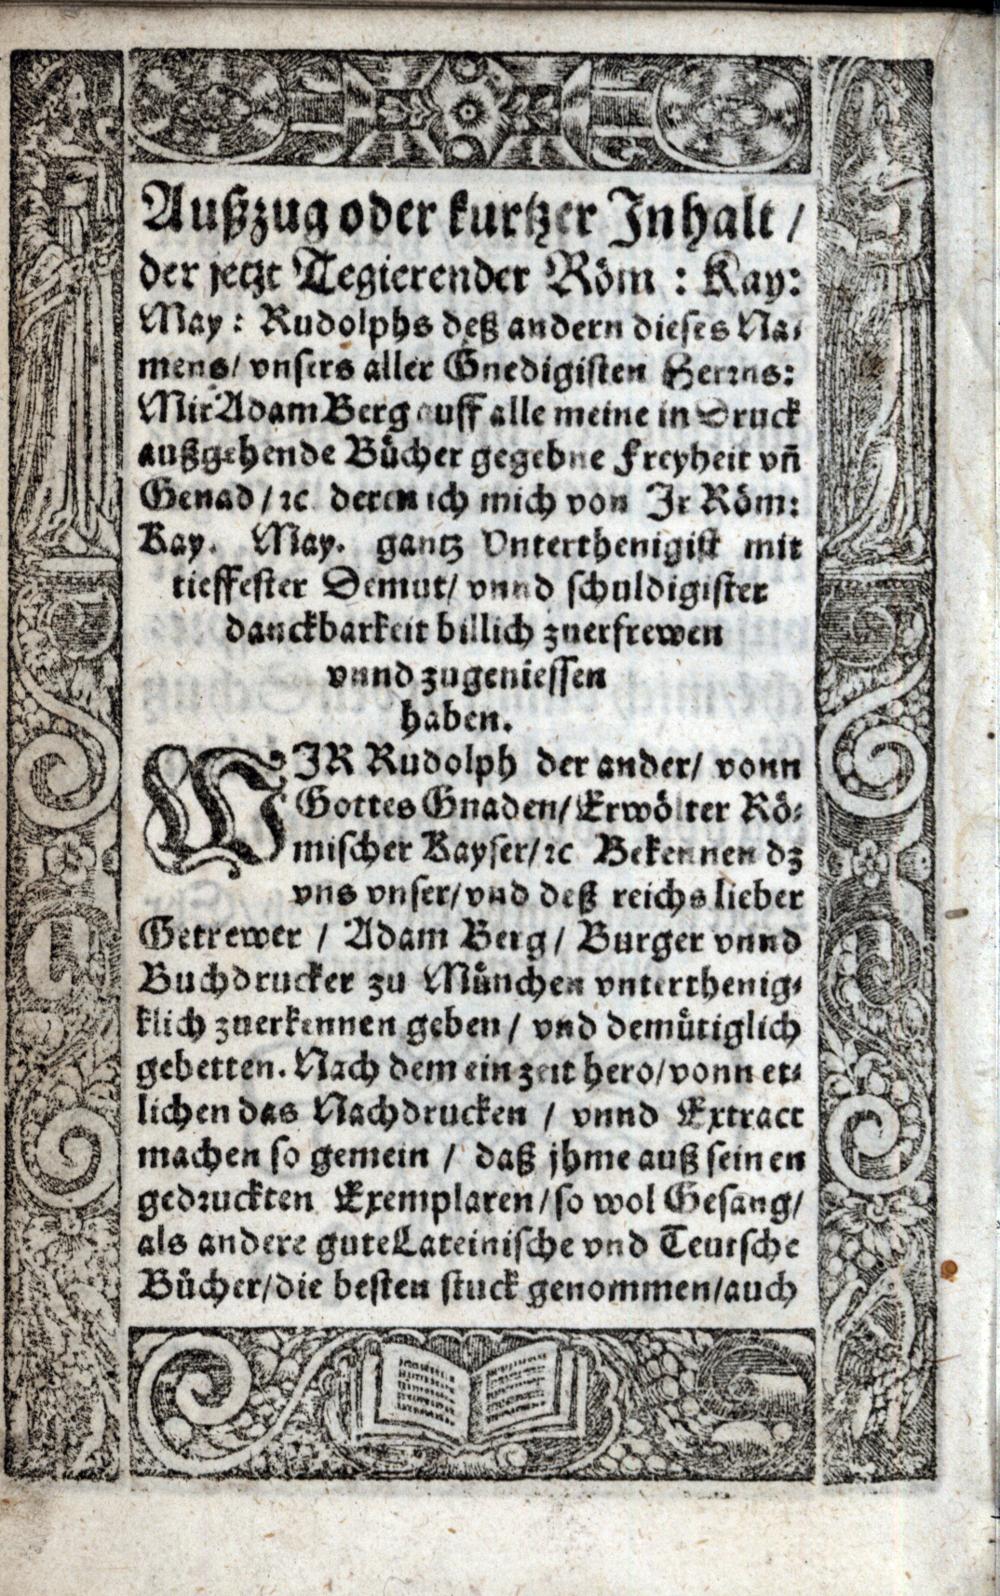 Außzug oder kurtzer Inhalt /
der jetzt Regierender Röm : Kay:
May : Rudolphs deß andern dieses Na-
mens/ vnsers aller Gnedigisten Herrns:
Mir Adam Berg auff alle meine in Druck
außgehende Bücher gegebne Freyheit vñ
Genad / ꝛc deren ich mich von Ir Röm:
Kay. May. gantz Vnterthenigist mit
tieffester Demut/ vnnd schuldigister
danckbarkeit billich zuerfrewen
vnnd zugeniessen
haben.
WIR Rudolph der ander/ vonn
Gottes Gnaden/ Erwölter Rö-
mischer Kayser/ ꝛc Bekennen dz
vns vnser/ vnd deß reichs lieber
Getrewer / Adam Berg/ Burger vnnd
Buchdrucker zu München vnterthenig-
klich zuerkennen geben / vnd demütiglich
gebetten. Nach dem ein zeit hero/ vonn et-
lichen das Nachdrucken / vnnd Extract
machen so gemein / daß jhme auß seinen
gedruckten Exemplaren / so wol Gesang/
als andere gute Lateinische vnd Teutsche
Bücher/ die besten stuck genommen/ auch